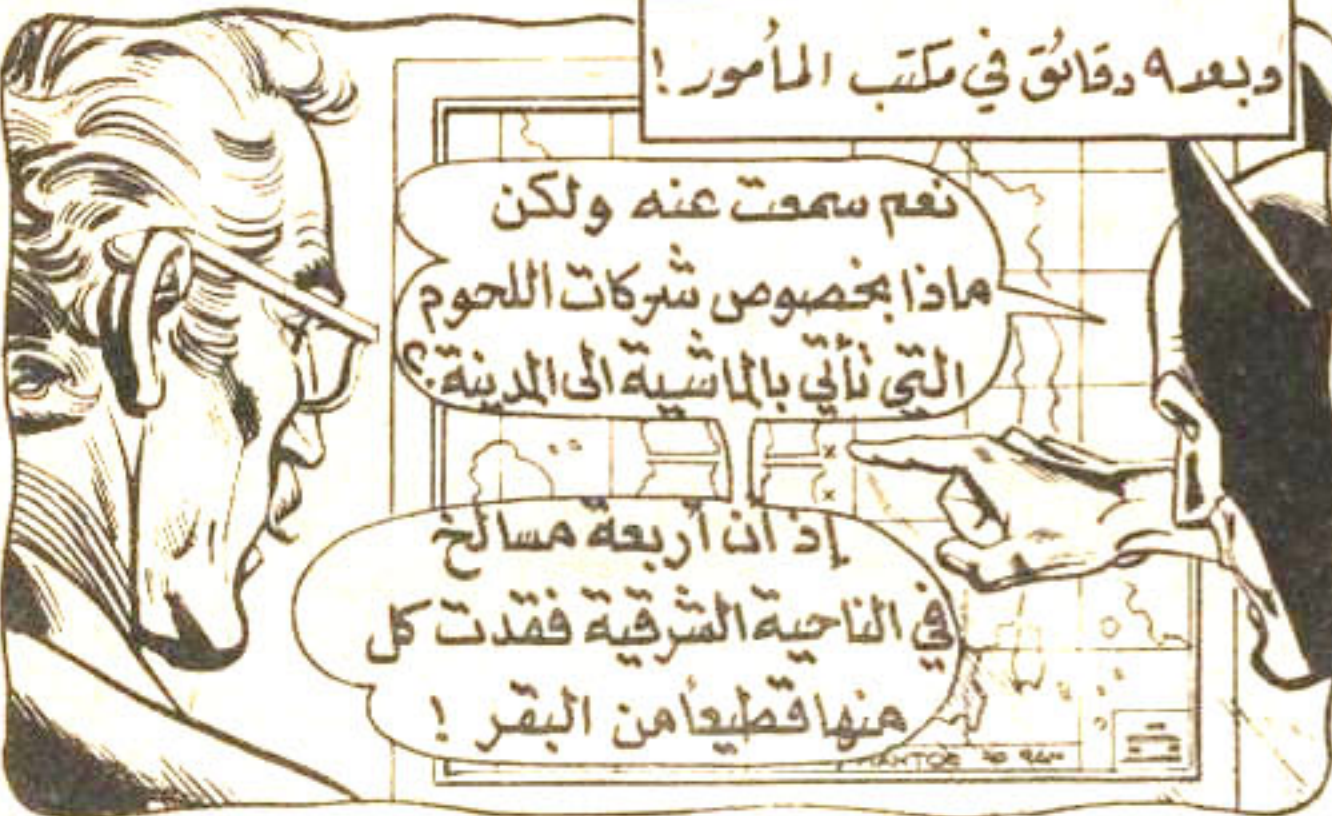 وبعد ٩ دقائق في مكتب المأمور!
نعم سمعت عنه ولكن
ماذا بخصوص شركات اللحوم
التي تأتي بالماشية الى المدينة؟
إذ أن أربعة مسالخ
في الناحية الشرقية فقدت كل
منها قطيعاً من البقر !